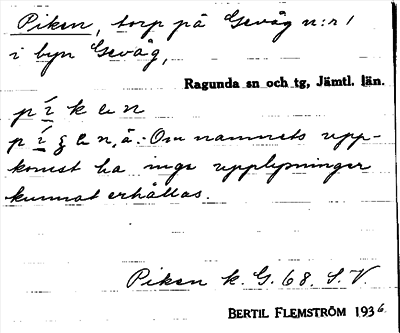 Piken, torp på Gevåg n:r 1
i byn Gevåg,
Ragunda sn och tg, Jämtl. län.
p í k e n
p í g e n, ä.: Om namnets upp-
komst ha inga upplysningar
kunnat erhållas.
Piken k. G. 68. S. V.
BERTIL FLEMSTRÖM 1936